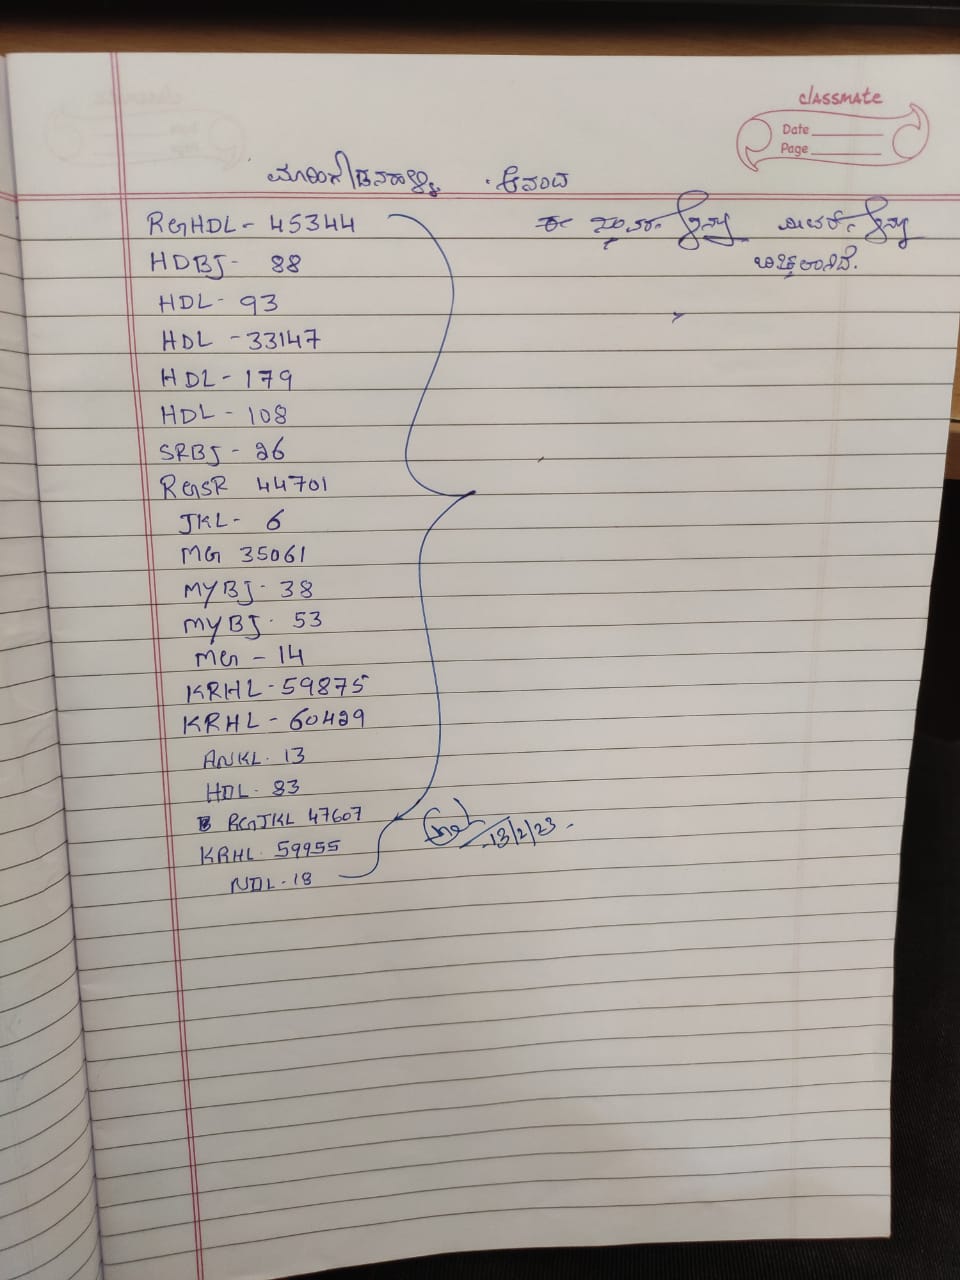 classmate
Date
Page
ಮಾರಗೌಡನಹಳ್ಳಿ ಆನಂದ
RGHDL - 45344
HDBJ - 88
HDL - 93
HDL - 33147
HDL - 179
HDL - 108
SRBJ - 26
RGSR 44701
JKL - 6
MG 35061
MYBJ - 38
MYBJ - 53
MG - 14
KRHL - 59875
KRHL - 60429
ANKL - 13
HDL - 83
RGJKL 47607
KRHL - 59955
NDL - 18
13/2/23